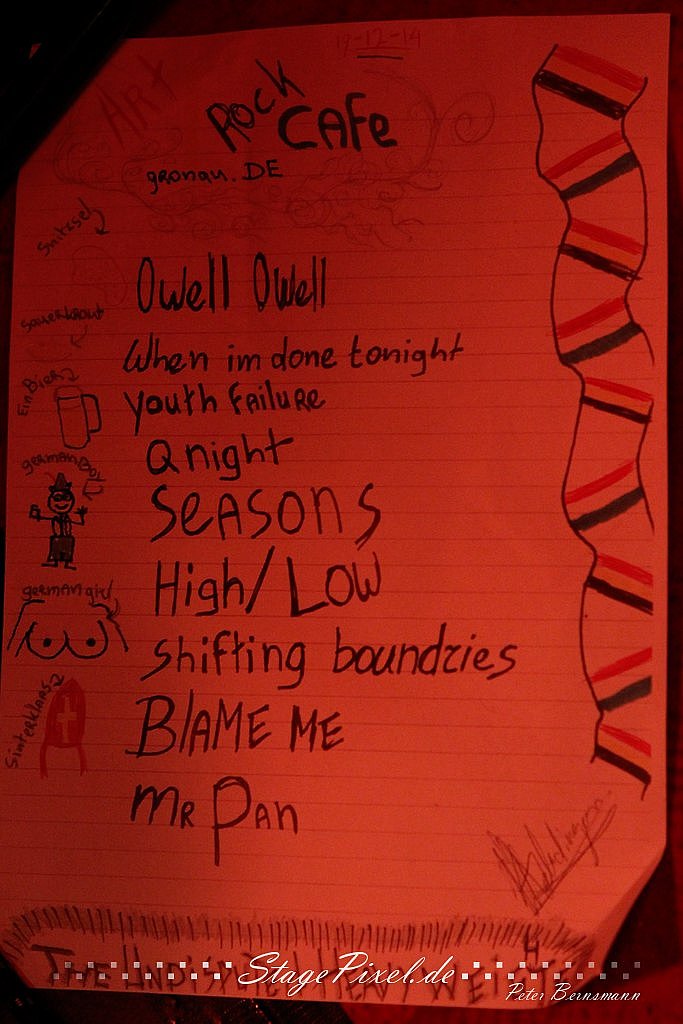 19-12-14
Art
Rock
Cafe
gronau.DE
Snitzsel
Owell Owell
sauerkraut
When im done tonight
Ein Bier
youth failure
Q night
german Boy
Seasons
High/Low
german girl
shifting boundries
Sinterklaas
Blame me
Mr Pan
The
StagePixel.de
Peter Bernsmann